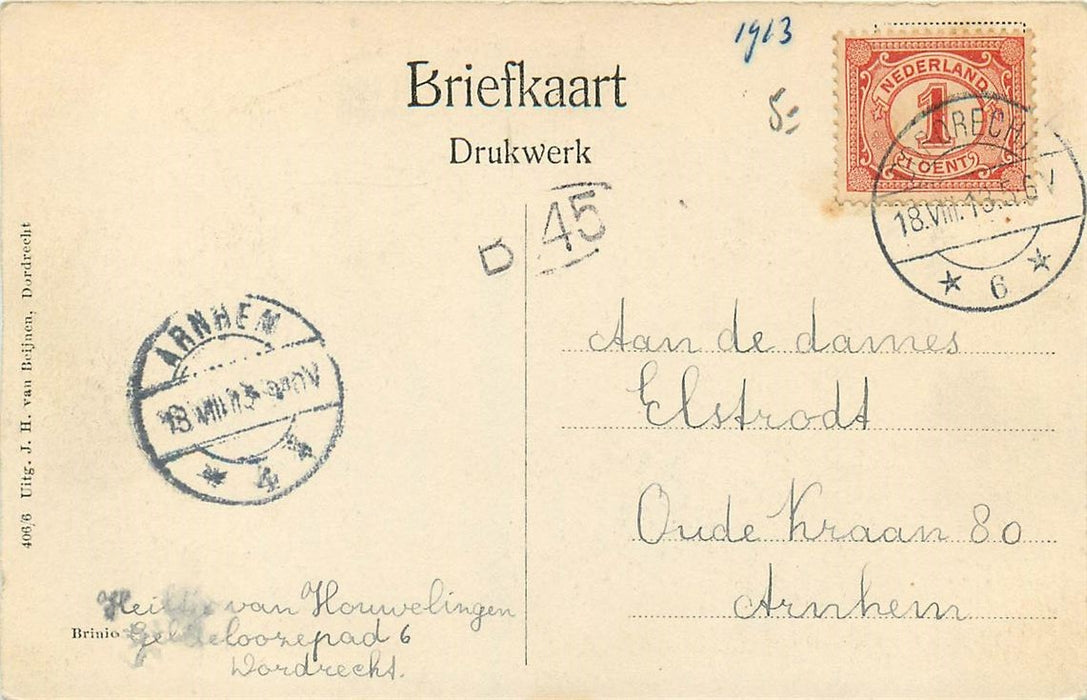 1913
5=
Briefkaart
Drukwerk
NEDERLAND
1
CENT
DRECHT
18.VIII.13.5-6V
6
D 45
ARNHEM
18.VIII.13
4
Aan de dames
Elstrodt
Oude Kraan 80
Arnhem
van Houwelingen
loozepad 6
Dordrecht.
Brinio
406/6 Uitg. J. H. van Beijnen, Dordrecht